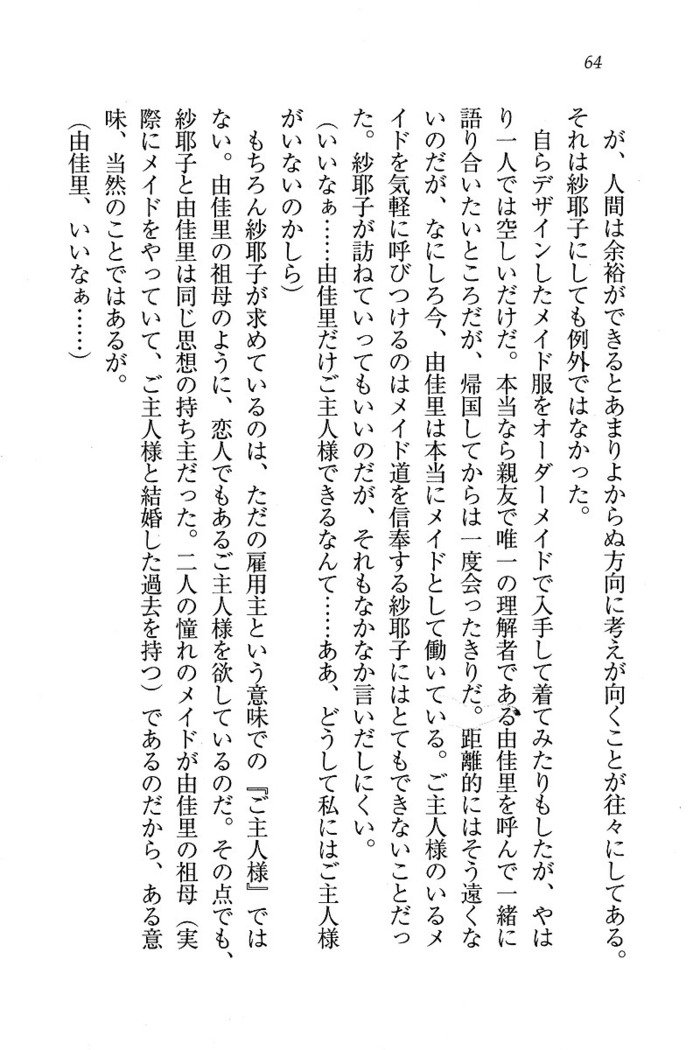 64
が、人間は余裕ができるとあまりよからぬ方向に考えが向くことが往々にしてある。
それは紗耶子にしても例外ではなかった。
自らデザインしたメイド服をオーダーメイドで入手して着てみたりもしたが、やは
り一人では空しいだけだ。本当なら親友で唯一の理解者である由佳里を呼んで一緒に
語り合いたいところだが、帰国してからは一度会ったきりだ。距離的にはそう遠くな
いのだが、なにしろ今、由佳里は本当にメイドとして働いている。ご主人様のいるメ
イドを気軽に呼びつけるのはメイド道を信奉する紗耶子にはとてもできないことだっ
た。紗耶子が訪ねていってもいいのだが、それもなかなか言いだしにくい。
（いいなぁ……由佳里だけご主人様できるなんて……ああ、どうして私にはご主人様
がいないのかしら）
もちろん紗耶子が求めているのは、ただの雇用主という意味での『ご主人様』では
ない。由佳里の祖母のように、恋人でもあるご主人様を欲しているのだ。その点でも、
紗耶子と由佳里は同じ思想の持ち主だった。二人の憧れのメイドが由佳里の祖母（実
際にメイドをやっていて、ご主人様と結婚した過去を持つ）であるのだから、ある意
味、当然のことではあるが。
（由佳里、いいなぁ……）